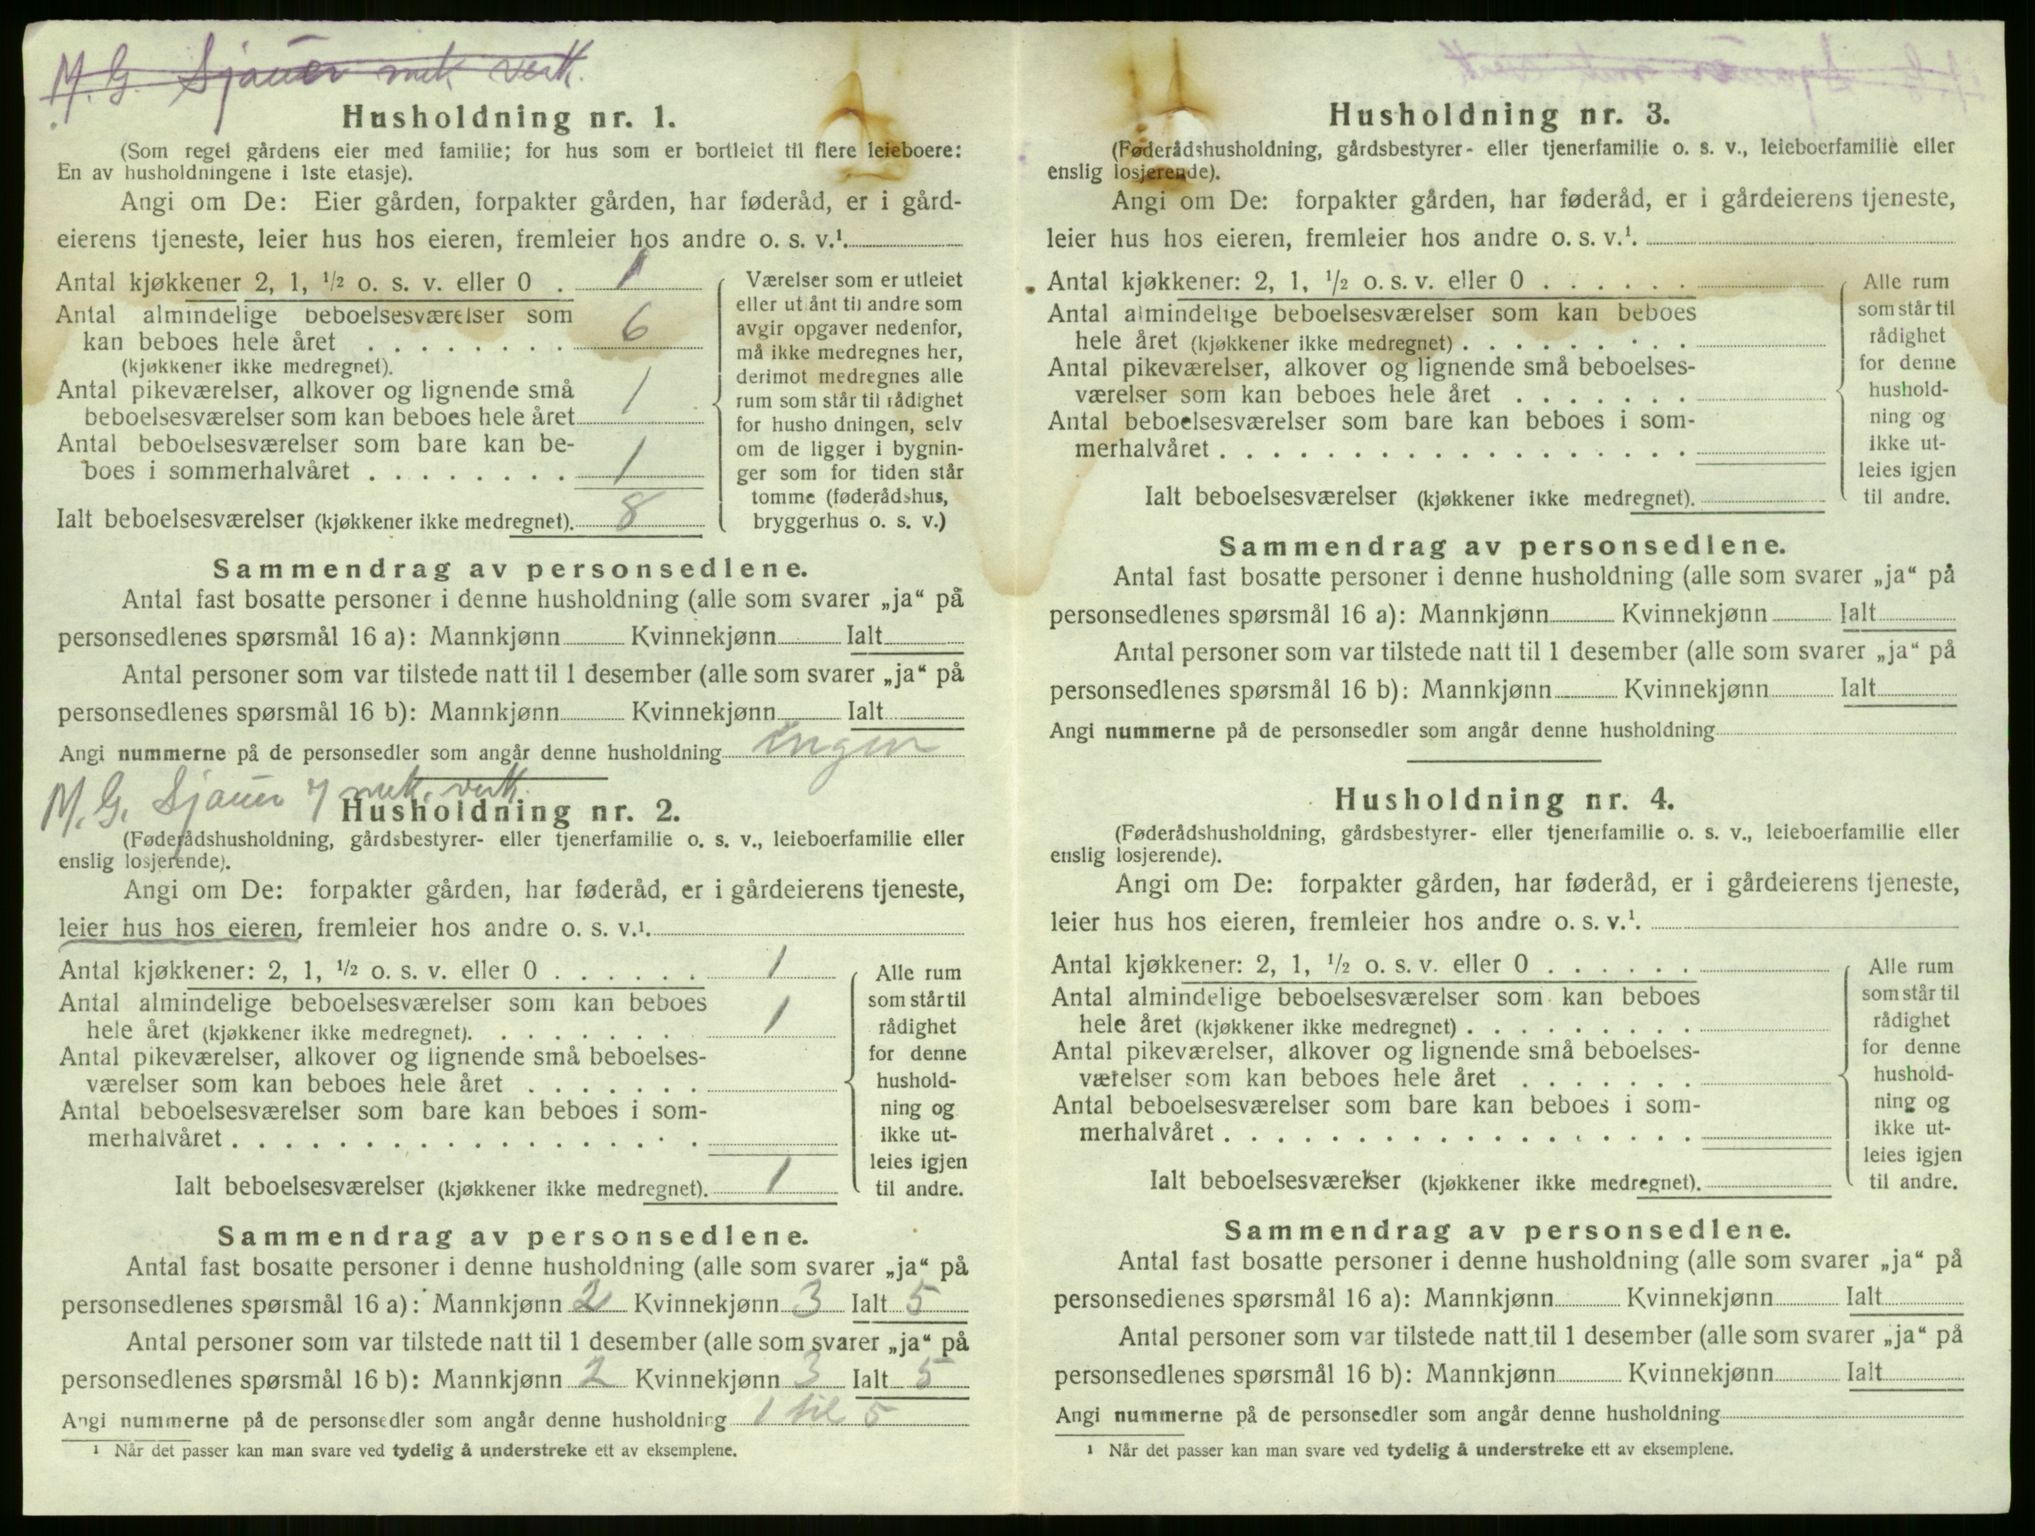 M. G. Sjauer mek verk.
Husholdning nr. 1.
(Som regel gårdens eier med familie; for hus som er bortleiet til flere leieboere:
En av husholdningene i 1ste etasje).
Angi om De: Eier gården, forpakter gården, har føderåd, er i gård-
eierens tjeneste, leier hus hos eieren, fremleier hos andre o. s. v.¹.
Antal kjøkkener 2, 1, ½ o. s. v. eller 0 . 1
Antal almindelige beboelsesværelser som
kan beboes hele året . . . . . . . . 6
(kjøkkener ikke medregnet).
Antal pikeværelser, alkover og lignende små
beboelsesværelser som kan beboes hele året 1
Antal beboelsesværelser som bare kan be-
boes i sommerhalvåret . . . . . . . . 1
Ialt beboelsesværelser (kjøkkener ikke medregnet). 8
Værelser som er utleiet
eller ut ånt til andre som
avgir opgaver nedenfor,
må ikke medregnes her,
derimot medregnes alle
rum som står til rådighet
for husho dningen, selv
om de ligger i bygnin-
ger som for tiden står
tomme (føderådshus,
bryggerhus o. s. v.)
Sammendrag av personsedlene.
Antal fast bosatte personer i denne husholdning (alle som svarer „ja“ på
personsedlenes spørsmål 16 a): Mannkjønn Kvinnekjønn Ialt
Antal personer som var tilstede natt til 1 desember (alle som svarer „ja“ på
personsedlenes spørsmål 16 b): Mannkjønn Kvinnekjønn Ialt
Angi nummerne på de personsedler som angår denne husholdning ingen
M. G. Sjauer 7 mek. verk.
Husholdning nr. 2.
(Føderådshusholdning, gårdsbestyrer- eller tjenerfamilie o. s. v., leieboerfamilie eller
enslig losjerende).
Angi om De: forpakter gården, har føderåd, er i gårdeierens tjeneste,
leier hus hos eieren, fremleier hos andre o. s. v.¹.
Antal kjøkkener: 2, 1, ½ o. s. v. eller 0 . . . . . . 1
Antal almindelige beboelsesværelser som kan beboes
hele året (kjøkkener ikke medregnet). . . . . . . . 1
Antal pikeværelser, alkover og lignende små beboelses-
værelser som kan beboes hele året . . . . . . .
Antal beboelsesværelser som bare kan beboes i som-
merhalvåret . . . . . . . . . . . . . . . . . .
Ialt beboelsesværelser (kjøkkener ikke medregnet). 1
Alle rum
som står til
rådighet
for denne
hushold-
ning og
ikke ut-
leies igjen
til andre.
Sammendrag av personsedlene.
Antal fast bosatte personer i denne husholdning (alle som svarer „ja“ på
personsedlenes spørsmål 16 a): Mannkjønn 2 Kvinnekjønn 3 Ialt 5
Antal personer som var tilstede natt til 1 desember (alle som svarer „ja“ på
personsedlenes spørsmål 16 b): Mannkjønn 2 Kvinnekjønn 3 Ialt 5
Angi nummerne på de personsedler som angår denne husholdning 1 til 5
¹ Når det passer kan man svare ved tydelig å understreke ett av eksemplene.
Husholdning nr. 3.
(Føderådshusholdning, gårdsbestyrer- eller tjenerfamilie o. s. v., leieboerfamilie eller
enslig losjerende).
Angi om De: forpakter gården, har føderåd, er i gårdeierens tjeneste,
leier hus hos eieren, fremleier hos andre o. s. v.¹.
Antal kjøkkener: 2, 1, ½ o. s. v. eller 0 . . . . . .
Antal almindelige beboelsesværelser som kan beboes
hele året (kjøkkener ikke medregnet) . . . . . . . . .
Antal pikeværelser, alkover og lignende små beboelses-
værelser som kan beboes hele året . . . . . . .
Antal beboelsesværelser som bare kan beboes i som-
merhalvåret . . . . . . . . . . . . . . . . . .
Ialt beboelsesværelser (kjøkkener ikke medregnet).
Alle rum
som står til
rådighet
for denne
hushold-
ning og
ikke ut-
leies igjen
til andre.
Sammendrag av personsedlene.
Antal fast bosatte personer i denne husholdning (alle som svarer „ja“ på
personsedlenes spørsmål 16 a): Mannkjønn Kvinnekjønn Ialt
Antal personer som var tilstede natt til 1 desember (alle som svarer „ja“ på
personsedlenes spørsmål 16 b): Mannkjønn Kvinnekjønn Ialt
Angi nummerne på de personsedler som angår denne husholdning
Husholdning nr. 4.
(Føderådshusholdning, gårdsbestyrer- eller tjenerfamilie o. s. v., leieboerfamilie eller
enslig losjerende).
Angi om De: forpakter gården, har føderåd, er i gårdeierens tjeneste,
leier hus hos eieren, fremleier hos andre o. s. v.¹.
Antal kjøkkener: 2, 1, ½ o. s. v. eller 0 . . . . . .
Antal almindelige beboelsesværelser som kan beboes
hele året (kjøkkener ikke medregnet) . . . . . . . . .
Antal pikeværelser, alkover og lignende små beboelses-
værelser som kan beboes hele året . . . . . . .
Antal beboelsesværelser som bare kan beboes i som-
merhalvåret . . . . . . . . . . . . . . . . . .
Ialt beboelsesværelser (kjøkkener ikke medregnet).
Alle rum
som står til
rådighet
for denne
hushold-
ning og
ikke ut-
leies igjen
til andre.
Sammendrag av personsedlene.
Antal fast bosatte personer i denne husholdning (alle som svarer „ja“ på
personsedienes spørsmål 16 a): Mannkjønn Kvinnekjønn Ialt
Antal personer som var tilstede natt til 1 desember (alle som svarer „ja“ på
personsedlenes spørsmål 16 b): Mannkjønn Kvinnekjønn Ialt
Angi nummerne på de personsedler som angår denne husholdning
¹ Når det passer kan man svare ved tydelig å understreke ett av eksemplene.